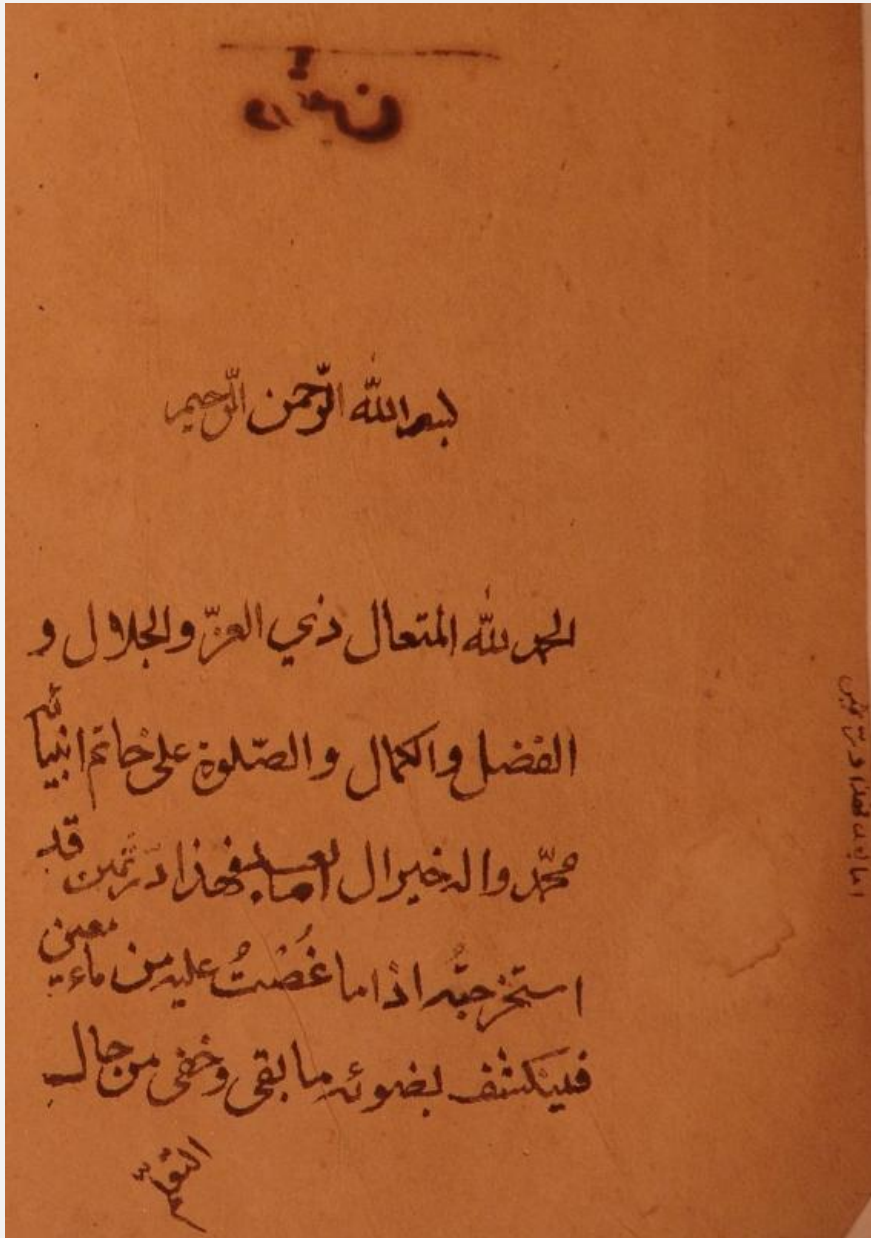 بسم الله الرّحمن الرّحيم
الحمد لله المتعال ذي العزّ والجلال و
الفضل والكمال والصّلوة على خاتم انبيائه
محمّد واله خير ال امابعد فهذا درّ ثمين قد
استخرجته اذا ما غُصْتُ عليه من ماء معين
فينكشف بضوئه ما بقى وخفى من حال
امابعد فهذا درّ ثمين